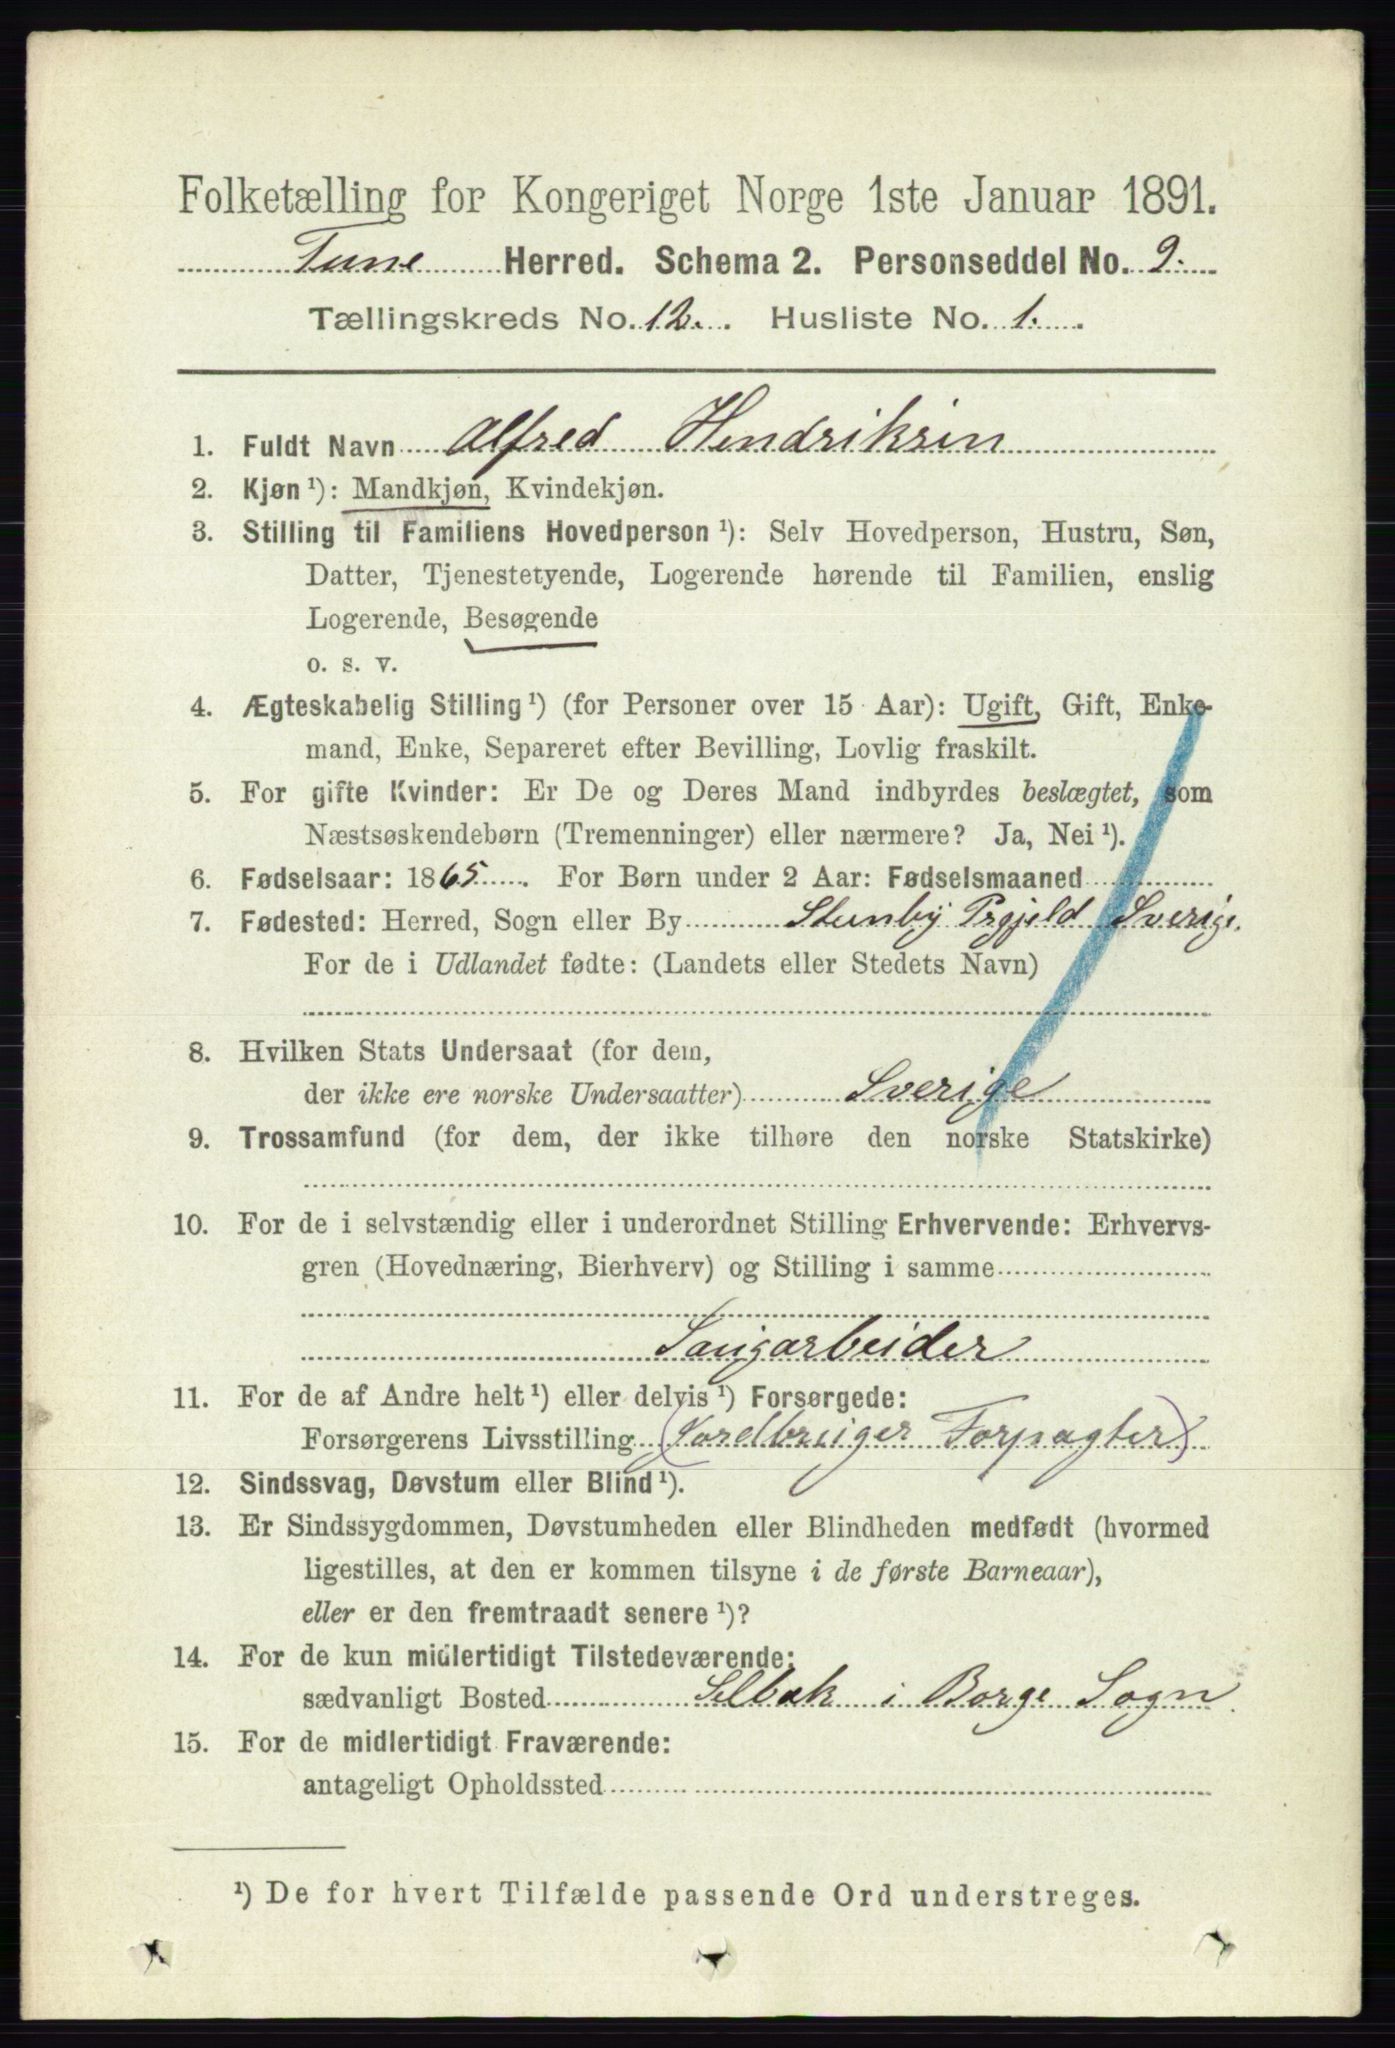 Folketælling for Kongeriget Norge 1ste Januar 1891.
Tune Herred. Schema 2. Personseddel No. 9.
Tællingskreds No. 12. Husliste No. 1.
1. Fuldt Navn Alfred Hendriksin
2. Kjøn ¹): Mandkjøn, Kvindekjøn.
3. Stilling til Familiens Hovedperson ¹): Selv Hovedperson, Hustru, Søn,
Datter, Tjenestetyende, Logerende hørende til Familien, enslig
Logerende, Besøgende
o. s. v.
4. Ægteskabelig Stilling ¹) (for Personer over 15 Aar): Ugift, Gift, Enke-
mand, Enke, Separeret efter Bevilling, Lovlig fraskilt.
5. For gifte Kvinder: Er De og Deres Mand indbyrdes beslægtet, som
Næstsøskendebørn (Tremenninger) eller nærmere? Ja, Nei ¹).
6. Fødselsaar: 1865. For Børn under 2 Aar: Fødselsmaaned
7. Fødested: Herred, Sogn eller By Stenby Prgjeld Sverige.
For de i Udlandet fødte: (Landets eller Stedets Navn)
8. Hvilken Stats Undersaat (for dem,
der ikke ere norske Undersaatter) Sverige
9. Trossamfund (for dem, der ikke tilhøre den norske Statskirke)
10. For de i selvstændig eller i underordnet Stilling Erhvervende: Erhvervs-
gren (Hovednæring, Bierhverv) og Stilling i samme
Saugarbeider
11. For de af Andre helt ¹) eller delvis ¹) Forsørgede:
Forsørgerens Livsstilling (Jordbruger Forpagter)
12. Sindssvag, Døvstum eller Blind ¹).
13. Er Sindssygdommen, Døvstumheden eller Blindheden medfødt (hvormed
ligestilles, at den er kommen tilsyne i de første Barneaar),
eller er den fremtraadt senere ¹)?
14. For de kun midlertidigt Tilstedeværende:
sædvanligt Bosted Selbak i Borge Sogn.
15. For de midlertidigt Fraværende:
antageligt Opholdssted
¹) De for hvert Tilfælde passende Ord understreges.